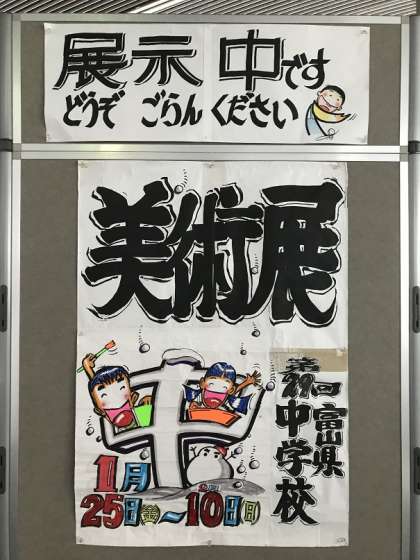 展示中です
どうぞ ごらんください
美術展
第29回
富山県
中学校
1月
25日(金)～10日(日)